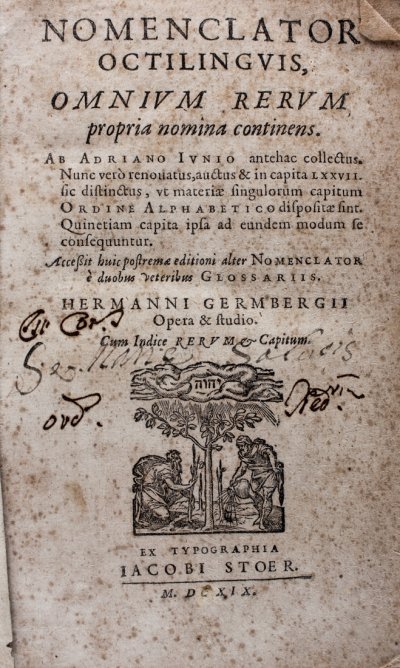 NOMENCLATOR
OCTILINGVIS,
OMNIVM RERVM
propria nomina continens.
AB ADRIANO IVNIO antehac collectus.
Nunc verò renouatus, auctus & in capita LXXVII.
sic distinctus, vt materiæ singulorum capitum
ORDINE ALPHABETICO dispositæ sint.
Quinetiam capita ipsa ad eundem modum se
consequuntur.
Acceßit huic postremæ editioni alter NOMENCLATOR
è duobus veteribus GLOSSARIIS.
HERMANNI GERMBERGII
Opera & studio.
Cum Indice RERVM & Capitum.
יהוה
EX TYPOGRAPHIA
IACOBI STOER.
M. DCXIX.